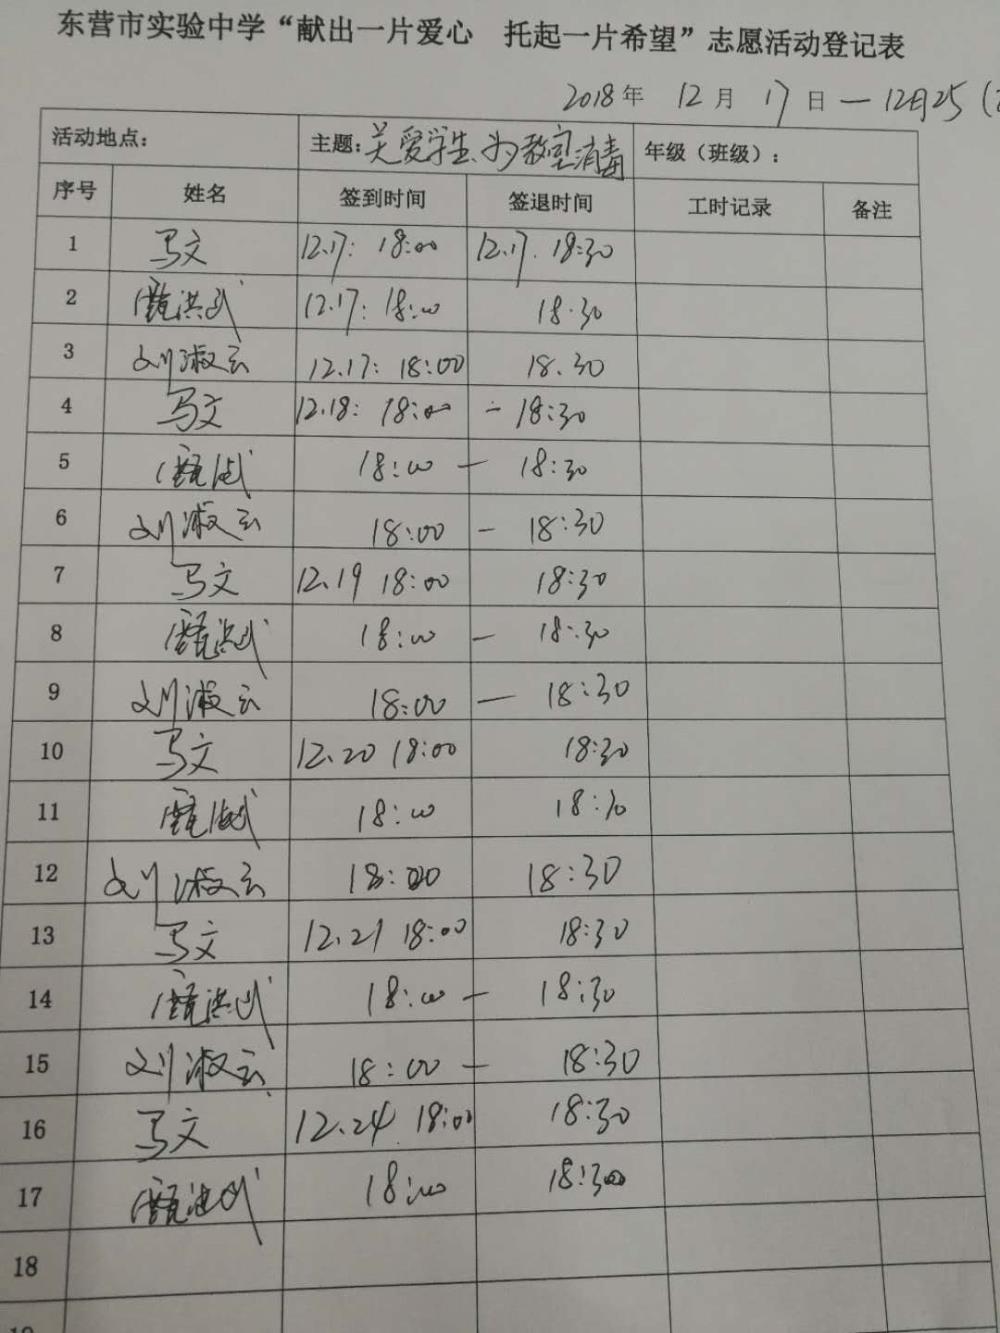 东营市实验中学“献出一片爱心 托起一片希望”志愿活动登记表
2018年 12月 17日 — 12月25(
活动地点: 主题:关爱学生、为教室消毒 年级（班级）:
序号 姓名 签到时间 签退时间 工时记录 备注
1 马文 12.17: 18:00 12.17. 18:30
2 甄洪武 12.17: 18:00 18.30
3 刘淑云 12.17: 18:00 18.30
4 马文 12.18: 18:00 - 18:30
5 甄洪武 18:00 - 18:30
6 刘淑云 18:00 - 18:30
7 马文 12.19 18:00 18:30
8 甄洪武 18:00 - 18:30
9 刘淑云 18:00 - 18:30
10 马文 12.20 18:00 18:30
11 甄洪武 18:00 18:30
12 刘淑云 18:00 18:30
13 马文 12.21 18:00 18:30
14 甄洪武 18:00 - 18:30
15 刘淑云 18:00 - 18:30
16 马文 12.24 18:00 18:30
17 甄洪武 18:00 18:30
18